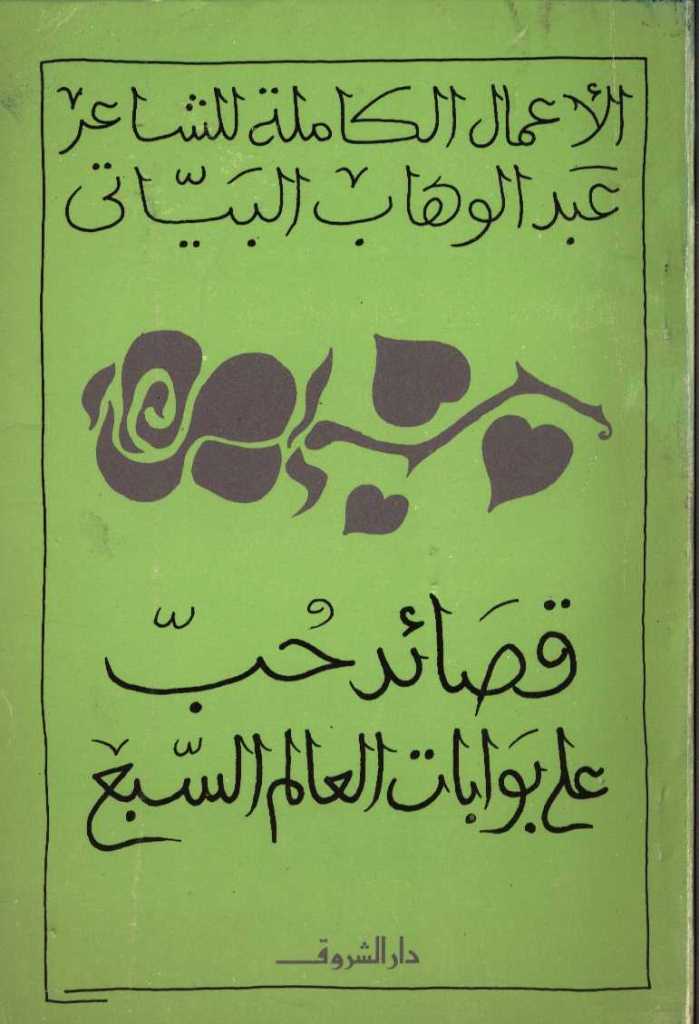 الأعمال الكاملة للشاعر
عَبد الوهَاب البَيّاتى
قصَائد حُبّ
على بَوابات العالم السّبع
دار الشروق